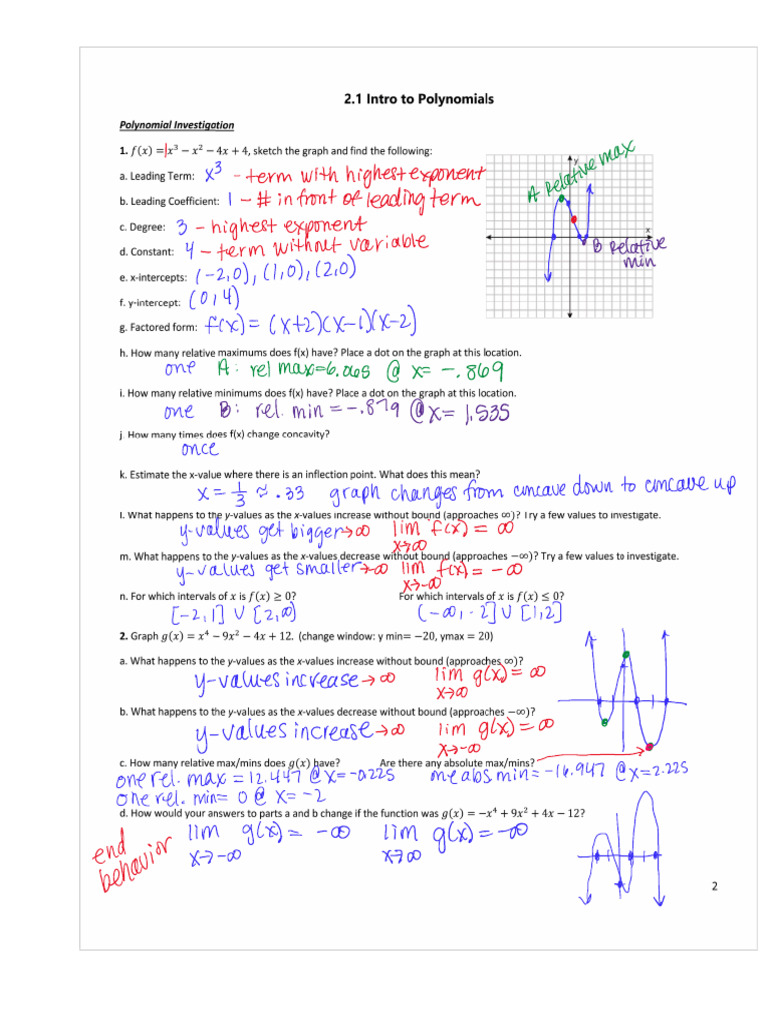 2.1 Intro to Polynomials
Polynomial Investigation
1. f(x) = x³ − x² − 4x + 4, sketch the graph and find the following:
a. Leading Term: x³ - term with highest exponent
b. Leading Coefficient: 1 - # in front of leading term
c. Degree: 3 - highest exponent
d. Constant: 4 - term without variable
e. x-intercepts: (-2,0), (1,0), (2,0)
f. y-intercept: (0,4)
g. Factored form: f(x) = (x+2)(x-1)(x-2)
y
x
A relative max
B relative
min
h. How many relative maximums does f(x) have? Place a dot on the graph at this location.
one A: rel max=6.065 @ x= -.869
i. How many relative minimums does f(x) have? Place a dot on the graph at this location.
one B: rel. min = -.879 @ x= 1.535
j. How many times does f(x) change concavity?
once
k. Estimate the x-value where there is an inflection point. What does this mean?
x = 1/3 ≈ .33 graph changes from concave down to concave up
l. What happens to the y-values as the x-values increase without bound (approaches ∞)? Try a few values to investigate.
y-values get bigger→∞ lim x→∞ f(x) = ∞
m. What happens to the y-values as the x-values decrease without bound (approaches −∞)? Try a few values to investigate.
y-values get smaller→∞ lim x→-∞ f(x) = -∞
n. For which intervals of x is f(x) ≥ 0? For which intervals of x is f(x) ≤ 0?
[-2,1] ∪ [2,∞) (-∞,-2] ∪ [1,2]
2. Graph g(x) = x⁴ − 9x² − 4x + 12. (change window: y min= −20, ymax = 20)
a. What happens to the y-values as the x-values increase without bound (approaches ∞)?
y-values increase →∞ lim x→∞ g(x) = ∞
b. What happens to the y-values as the x-values decrease without bound (approaches −∞)?
y-values increase →∞ lim x→-∞ g(x) = ∞
c. How many relative max/mins does g(x) have? Are there any absolute max/mins?
one rel. max = 12.447 @ x=-0.225 abs min= -16.947 @ x=2.225
one rel. min= 0 @ x= -2
d. How would your answers to parts a and b change if the function was g(x) = −x⁴ + 9x² + 4x − 12?
end
behavior
lim x→-∞ g(x) = -∞ lim x→∞ g(x) = -∞
2